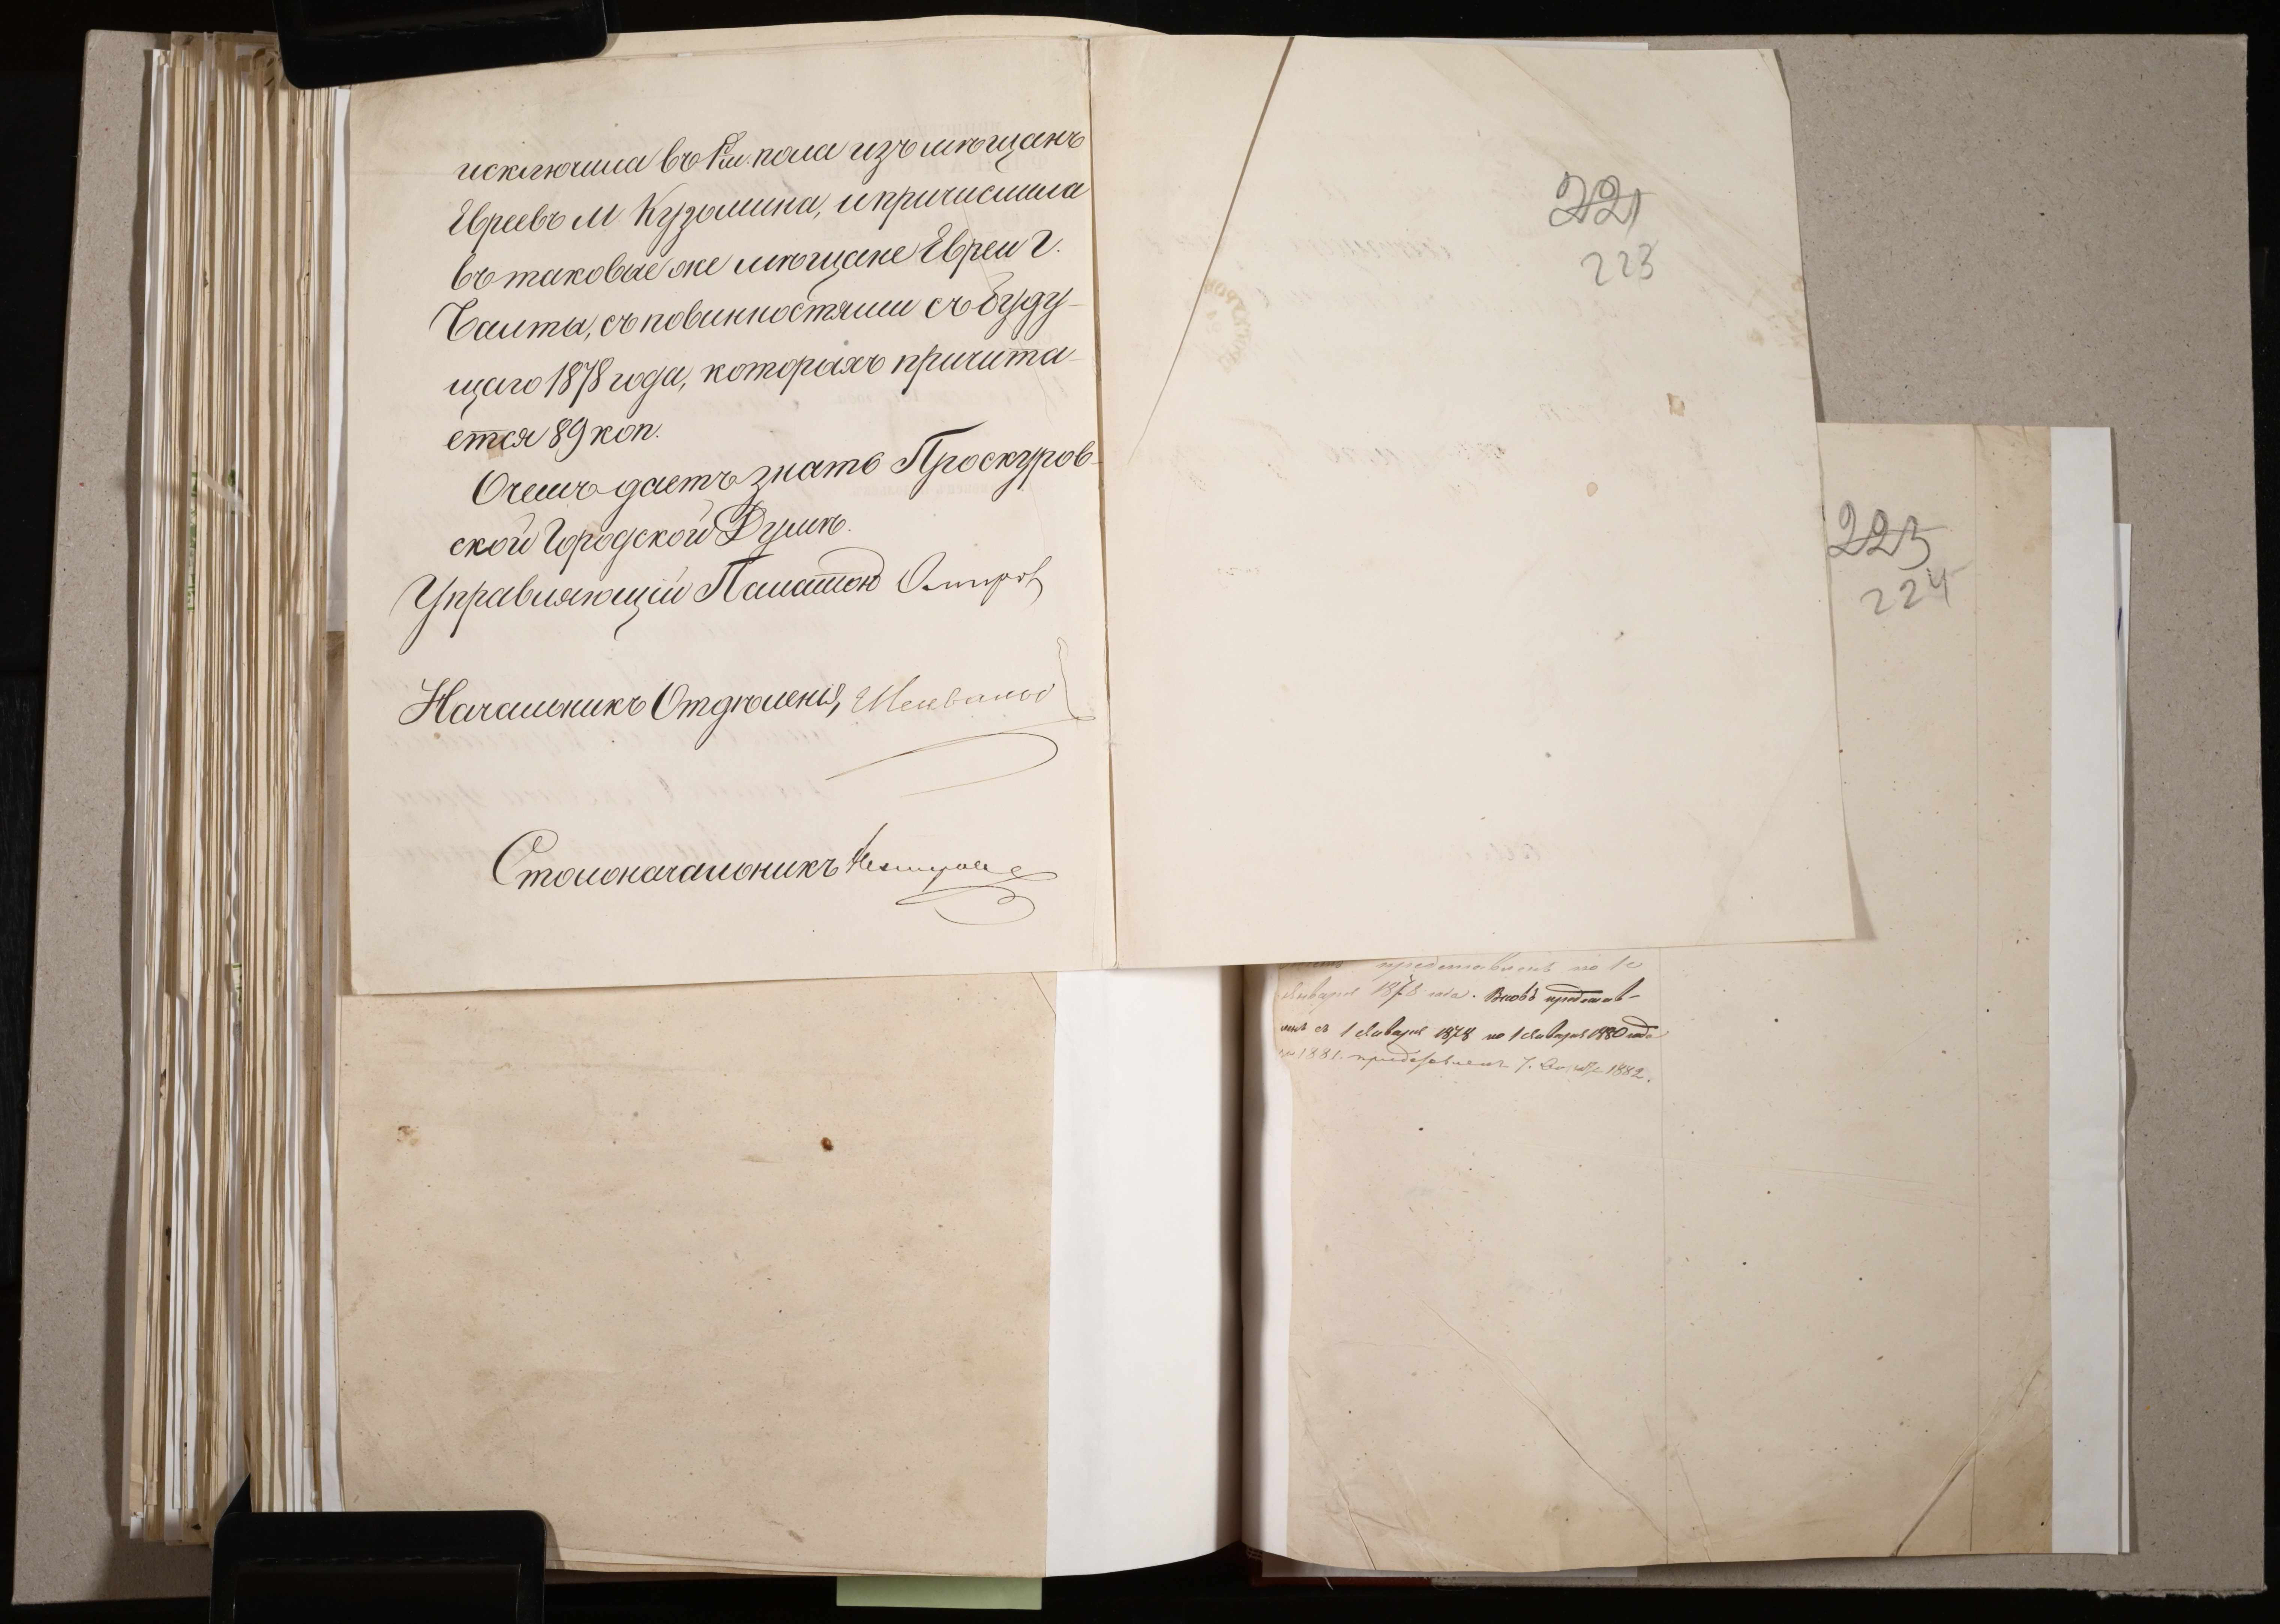 исключила въ м. пола изъ мѣщанъ
Евреевъ М. Кузьмина, и причислила
въ таковые же мѣщане Евреи г.
Балты, съ повинностями съ буду-
щаго 1878 года, которыхъ причита-
ется 89 коп.
О чемъ даетъ знать Проскуров-
ской Городской Думѣ.
Управляющій Палатою
Начальникъ Отдѣленія,
Столоначальникъ
221
223
223
224
представить по 1е
Января 1878 года. Вновь представ-
съ 1 Января 1878 по 1 Января 1880 года
1881. 1882.